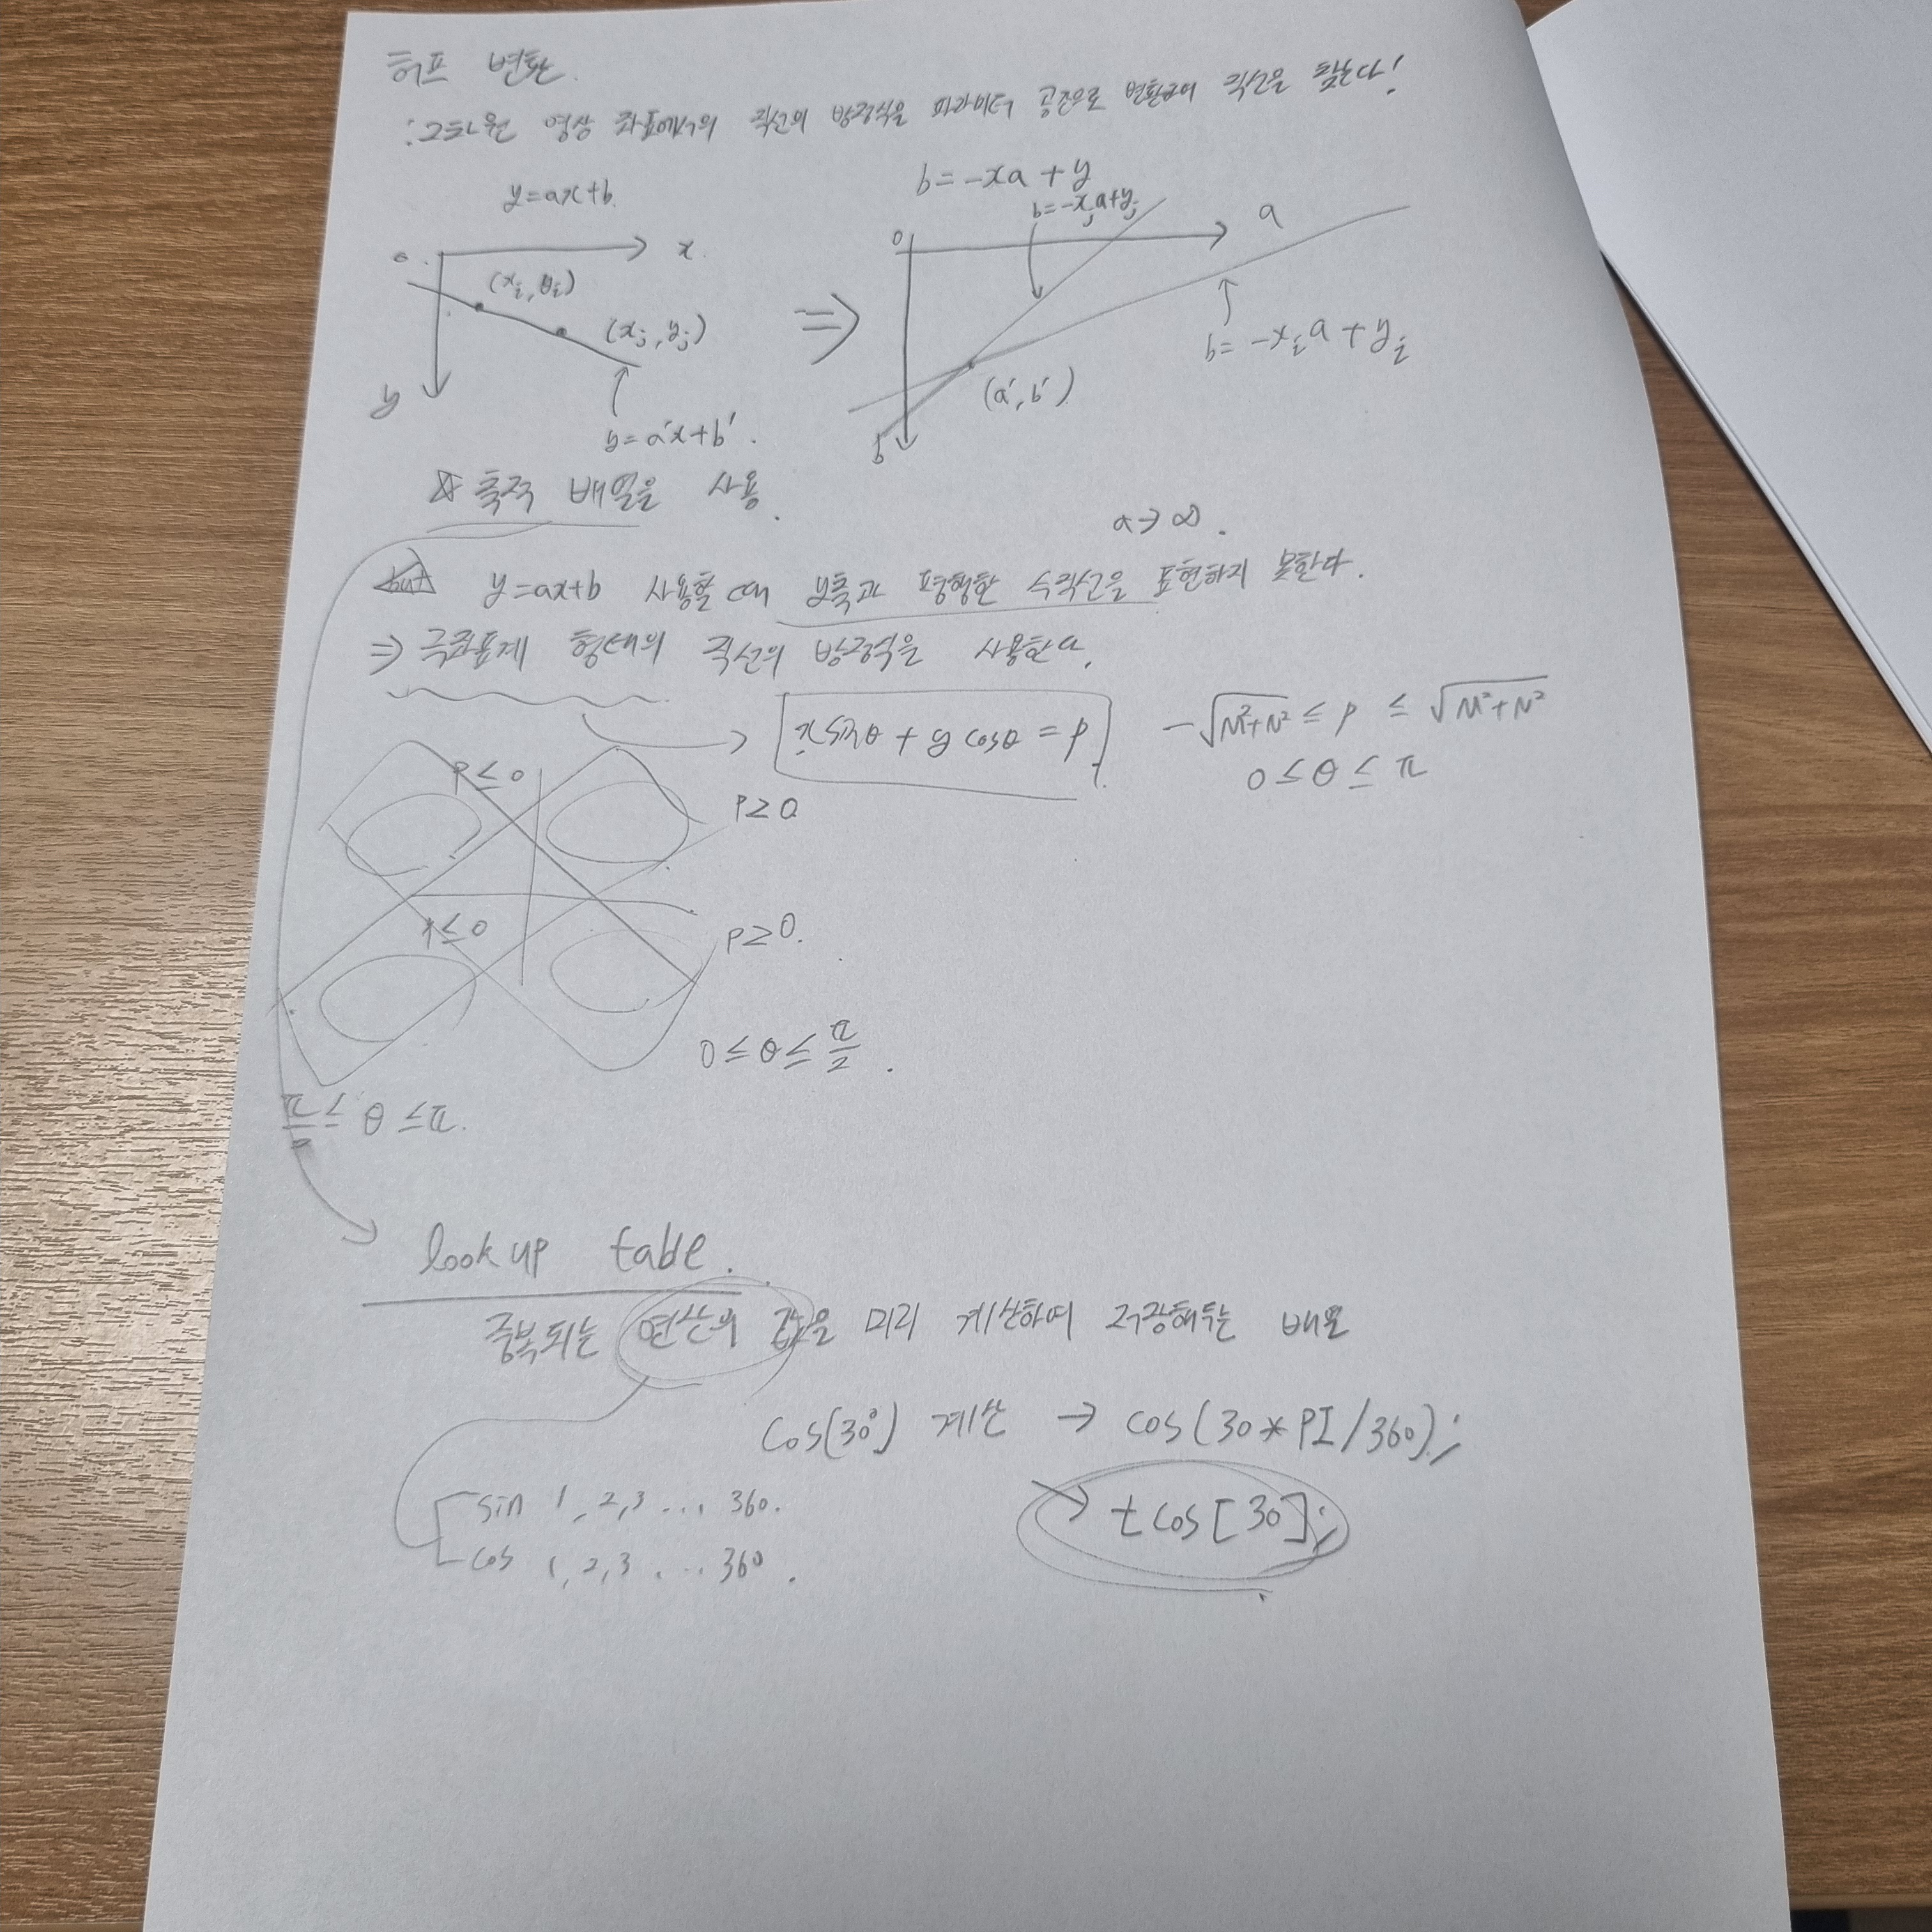 허프 변환.
: 2차원 영상 좌표에서의 직선의 방정식을 파라미터 공간으로 변환하여 직선을 찾는다!
y=ax+b.
b=-xa+y
b=-xja+yj
o. x.
0 a
(xi, yi)
(xj, yj)
⇒
b=-xia+yi
y
(a', b')
y=a'x+b'.
b
☆ 축적 배열을 사용.
a→∞.
but y=ax+b 사용할 때 y축과 평행한 수직선을 표현하지 못한다.
⇒ 극좌표계 형태의 직선의 방정식을 사용한다.
→ x sinθ + y cosθ = ρ
-√M²+N² ≤ ρ ≤ √M²+N²
0 ≤ θ ≤ π
ρ ≤ 0
ρ ≥ 0
ρ ≤ 0
ρ ≥ 0.
0 ≤ θ ≤ π/2.
π/2 ≤ θ ≤ π.
look up table.
중복되는 연산의 값을 미리 계산하여 저장해두는 배열
cos(30°) 계산 → cos(30*PI/360);
sin 1, 2, 3 ... 360.
→ tcos[30];
cos 1, 2, 3 ... 360.